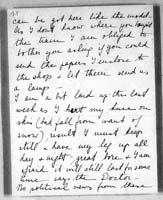 can be got here like the model.
As I don't know where you bought
the Tissue I am obliged to
bother you asking if you could
send the papers I enclose to
the shop & let them send us
a lamp —
I am a bit laid up this last
week as I hurt my knee on
skis (bad fall from want of
snow) result I must keep
still & have my leg up all
day & night great bore & I am
afraid it will still last for some
time — says the Doctor.
No political news from these